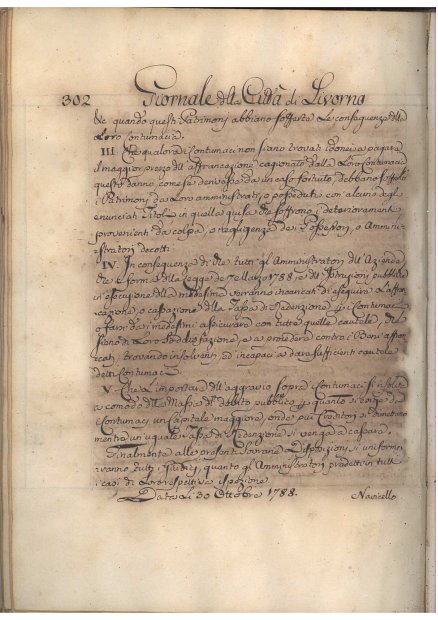 302 Giornale della Città di Livorno
che quando questi Patrimonj abbiano sofferta le conseguenze della
Loro contumacia.
III. Che qualora i Contumaci non siano trovati idonei a pagare
il maggior prezzo dell'affrancazione cagionato dalla Loro contumacia
questo danno come se derivasse da un caso fortuito, debbano soffrirlo
i Patrimonj da Loro amministrati, o posseduti con alcuno degl'
enunciati Titoli in quella guisa che soffrono i deterioramenti
provenienti da colpa, o negligenza dei Possessori, o Ammini-
stratori decotti.
IV. In conseguenza di che tutti gl'Amministratori dell'Aziende
che a forma della Legge de' 7 Marzo 1788, e dell'Istruzioni pubblicate
in esecuzione della medesima verranno incaricati di eseguire l'affran-
cazione, o cassazione della Tassa di Redenzione
o farsi dai medesimi assicurare con tutte quelle cautele, che
siano di Loro sodisfazione, e a procedere contro i Beni affran-
cati, trovando insolventi, ed incapaci a dare sufficienti cautele
detti Contumaci.
V. Che l'importare dell'aggravio sopra i Contumaci
comodo della Massa del debito pubblico, quanto si esige da'
Contumaci un Capitale maggiore, onde più Creditori si dimettino
mentre un'uguale Tassa di Redenzione si venga a cassare.
Finalmente alle presenti Sovrane Disposizioni si uniforme-
ranno tutti i Giudici, quanto gl'Amministratori predetti in tutti
i casi di Loro respettiva ispezione.
Data li 30 Ottobre 1788. Navicello